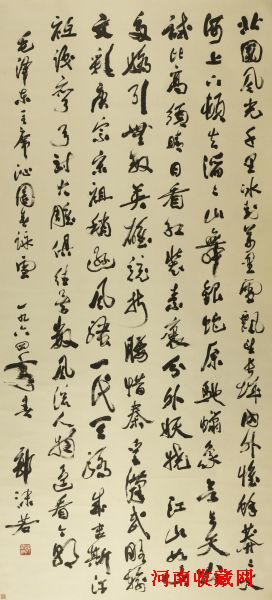 北國風光千里冰封萬里雪飄望長城內外惟餘莽莽大
河上下頓失滔滔山舞銀蛇原馳蠟象欲與天公
試比高須晴日看紅裝素裹分外妖嬈江山如此
多嬌引無數英雄競折腰惜秦皇漢武略輸
文彩唐宗宋祖稍遜風騷一代天驕成吉斯汗
祗識彎弓射大雕俱往矣數風流人物還看今朝
毛澤東主席沁園春詠雪 一九六四年春 郭沫若
河南收藏网